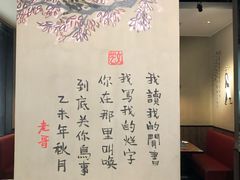 我讀我的閒書
我寫我的爛字
你在那里叫喚
到底关你鳥事
乙未年秋月
老哥